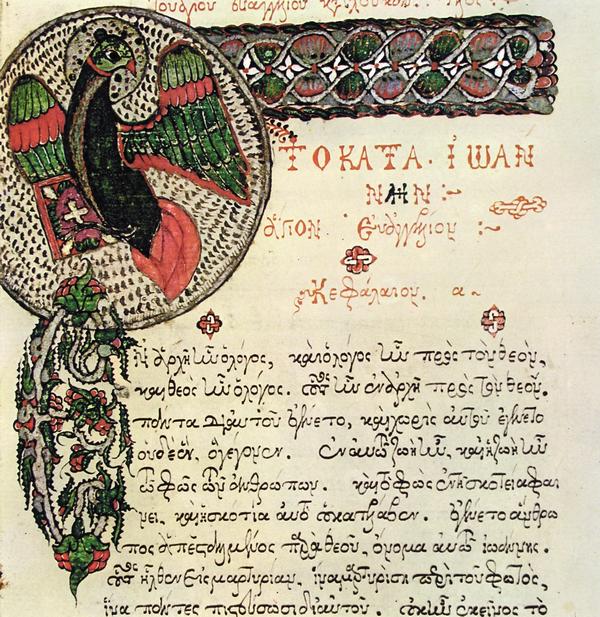 ΤΟ ΚΑΤΑ· ἸΩΑΝ
ΝΗΝ :~
ἅγιον Εὐαγγέλιον :~
Κεφάλαιον. α ~
Ἐν ἀρχῇ ἦν ὁ λόγος, καὶ ὁ λόγος ἦν πρὸς τὸν θεόν,
καὶ θεὸς ἦν ὁ λόγος. οὗτος ἦν ἐν ἀρχῇ πρὸς τὸν θεόν.
πάντα δι αὐτοῦ ἐγένετο, καὶ χωρὶς αὐτοῦ ἐγένετο
οὐδὲ ἕν, ὃ γέγονεν. ἐν αὐτῷ ζωὴ ἦν, καὶ ἡ ζωὴ ἦν
τὸ φῶς τῶν ἀνθρώπων. καὶ τὸ φῶς ἐν τῇ σκοτείᾳ φαί
νει, καὶ ἡ σκοτία αὐτὸ οὐ κατέλαβεν. ἐγένετο ἄνθρω
πος ἀπεσταλμένος παρὰ θεοῦ, ὄνομα αὐτῷ ἰωάννης.
οὗτος ἦλθεν εἰς μαρτυρίαν, ἵνα μαρτυρίσῃ περὶ τοῦ φωτός,
ἵνα πάντες πιστεύσωσι δι αὐτοῦ. οὐκ ἦν ἐκεῖνος τὸ